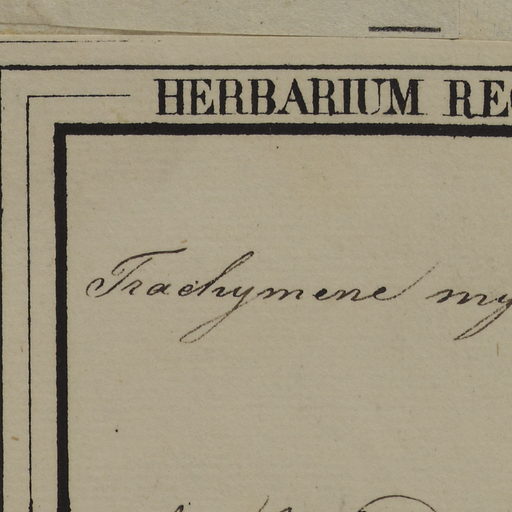 HERBARIUM REG
Trachymene my